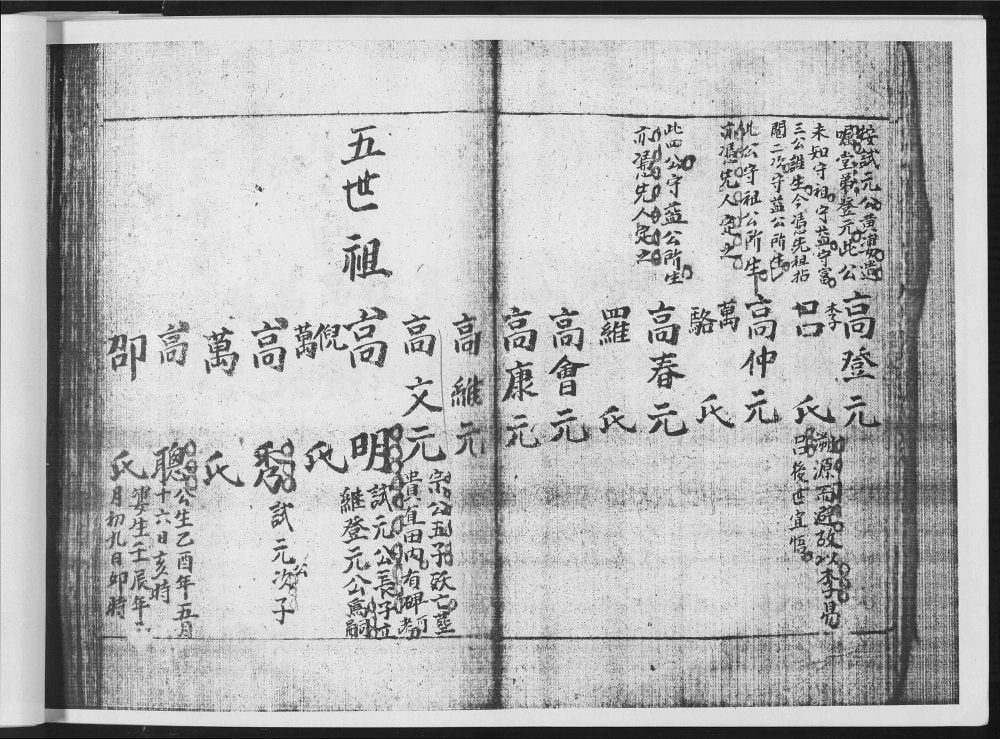 按試元公黃浦安遺
囑堂弟登元此公
未知守祖守藍守富
三公誰生今憑先祖拈
鬮二次守藍公所生
高登元
李
呂氏
溯源而避政以李易
呂後世宜悟
此公守祖公所生
亦憑先人定之
高仲元
萬
駱氏
此四公守藍公所生
亦憑先人定之
高春元
羅氏
高會元
高康元
高維元
高文元
宗公五子歿亡藍
貴直田內有碑可考
五世祖
高明
試元公長子立
繼登元公爲嗣
倪
萬氏
高秀
試元公次子
萬氏
高聰
公生乙酉年五月
十六日亥時
邵氏
婆生壬辰年六
月初九日卯時